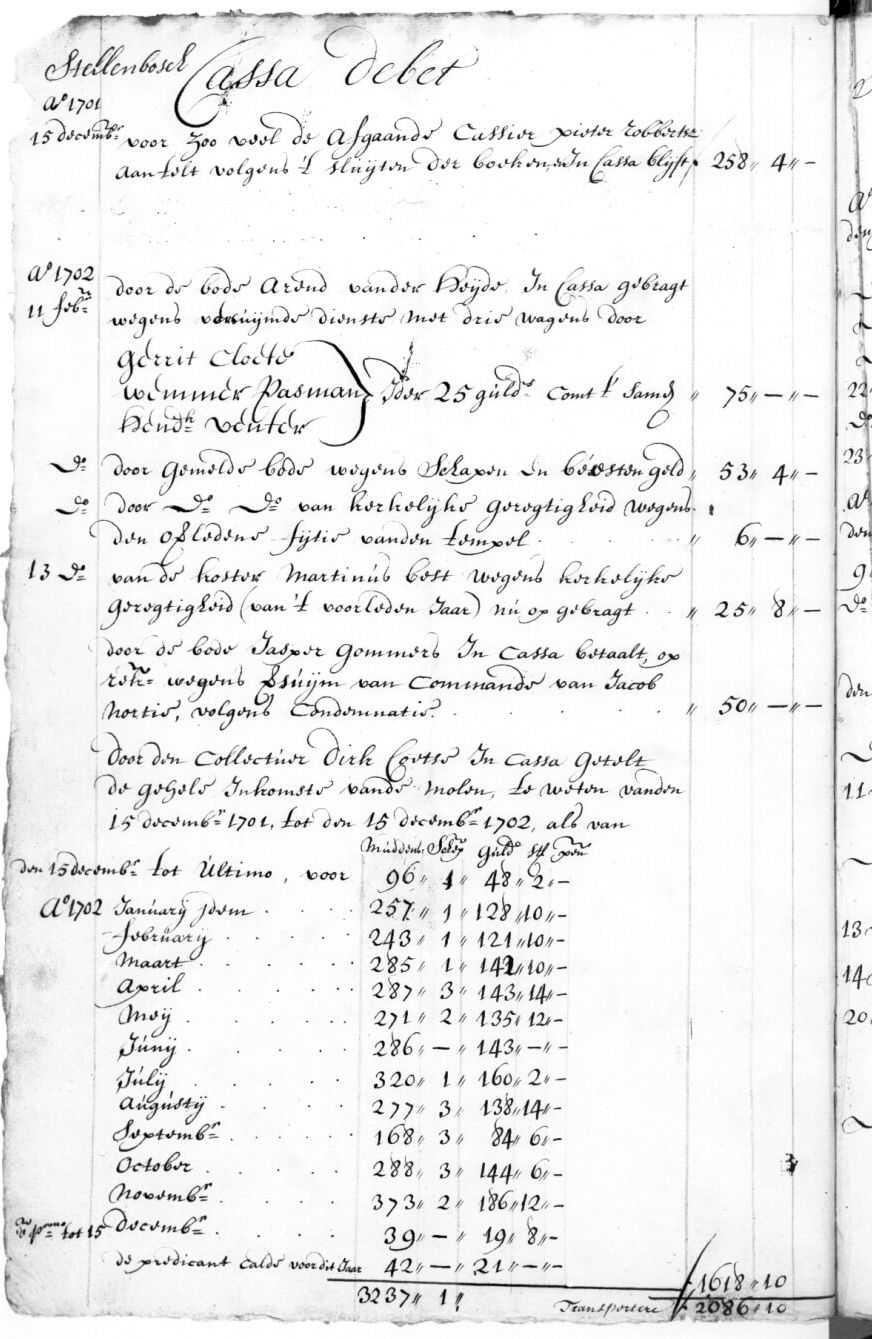 Stellenbosch Cassa debet
Ao 1701
15 decembr. voor zoo veel de Afgaande Cassier pieter robbertsz
aantelt volgens 't sluijten der boeken, en In Cassa blijft 258 „ 4 „ —
Ao 1702 door de bode Arend vander Heijde In Cassa gebragt
11 febr. wegens versuijmde dienste met drie wagens door
Gerrit Cloete
wemmer Pasman Ider 25 guld.s comt t' samen „ 75 „ — „ —
Hendk. venter
Do. door gemelde bode wegens Schapen en beesten geld „ 53 „ 4 „ —
Do. door Do. Do. van kerkelijke geregtigheid wegens
den overledene fijtie vanden tempel „ 6 „ — „ —
13 Do. van de koster Martinus best wegens kerkelijke
geregtigheid (van 't voorleden Jaar) nu op gebragt „ 25 „ 8 „ —
door de bode Jasper gommers In Cassa betaalt, op
rekr. wegens versuijm van Commando van Jacob
Nortie, volgens Condemnatie. „ 50 „ — „ —
door den Collectuer Dirk Coetse In Cassa getelt
de gehele Inkomste vande molen, te weten vanden
15 decembr. 1701, tot den 15 decembr. 1702, als van
Mudden Schep guld st. pen
den 15 decembr. tot Ultimo, voor 96 „ 1 „ 48 „ 2 „ —
Ao 1702 January jdem 257 „ 1 „ 128 „ 10 „ —
february 243 „ 1 „ 121 „ 10 „ —
maart 285 „ 1 „ 142 „ 10 „ —
April 287 „ 3 „ 143 „ 14 „ —
Meij 271 „ 2 „ 135 „ 12 „ —
Junij 286 „ — „ 143 „ — „ —
Julij 320 „ 1 „ 160 „ 2 „ —
Augustij 277 „ 3 „ 138 „ 14 „ —
Septembr. 168 „ 3 „ 84 „ 6 „ —
October 288 „ 3 „ 144 „ 6 „ —
Novembr. 373 „ 2 „ 186 „ 12 „ —
tot 15 decembr. 39 „ — „ 19 „ 8 „ —
de predicant Calde voor dit Jaar 42 „ — „ 21 „ — „ —
1618 „ 10
3237 „ 1 „ Transportere 2086 „ 10